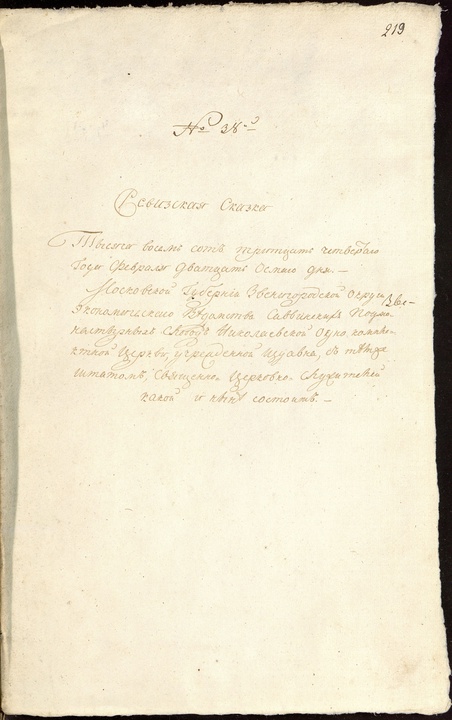 219
№ 38.й
Ревизская Сказка
Тысяча восемь сотъ тритцать четвертаго
Года Февраля дватцать осмаго дня.—
Московской Губернiи Звенигородской Округи
Экономическаго Вѣдомства Саввинских Подмо-
настырных слободъ Николаевской одно
церкви, учрежденной издавна, съ тѣмъ
штатомъ, Священно Церковно Служителей
какой и нынѣ состоитъ.—